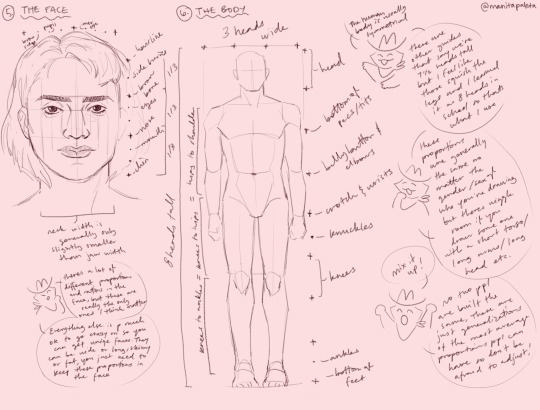 ⑤ THE FACE
hairline
side hairline
brow bone
eyes
nose
mouth
chin
1/3
1/3
1/3
neck width is
generally only
slightly smaller
than jaw width
there's a lot of
different proportions
and ratios in the
face, but these are
really the only
ones I think matter
Everything else is p much
ok to go crazy on so you
can get unique faces. They
can be wide or long, skinny
or fat, you just need to
keep these proportions in
the face
⑥ THE BODY
3 heads
wide
8 heads tall
knees to ankles = knees to hips = hips to shoulder
head
bottom of
pecs/tits
bellybutton &
elbows
crotch & wrists
knuckles
knees
ankles
bottom of
feet
@manitapalata
The human
body is usually
symmetrical
there are
other guides
that say we're
7½ heads tall
but I feel like
those squish the
legs and I learned
it as 8 heads in
school so thats
what I use
these
proportions
are generally
the same no
matter the
gender/sex of
who you're drawing
but theres wiggle
room if you
draw some one
with a short torso/
long arms/long
head etc.
mix it
up!
no two ppl
are built the
same, these are
just generalizations
of the most average
proportions ppl can
have so don't be
afraid to adjust!